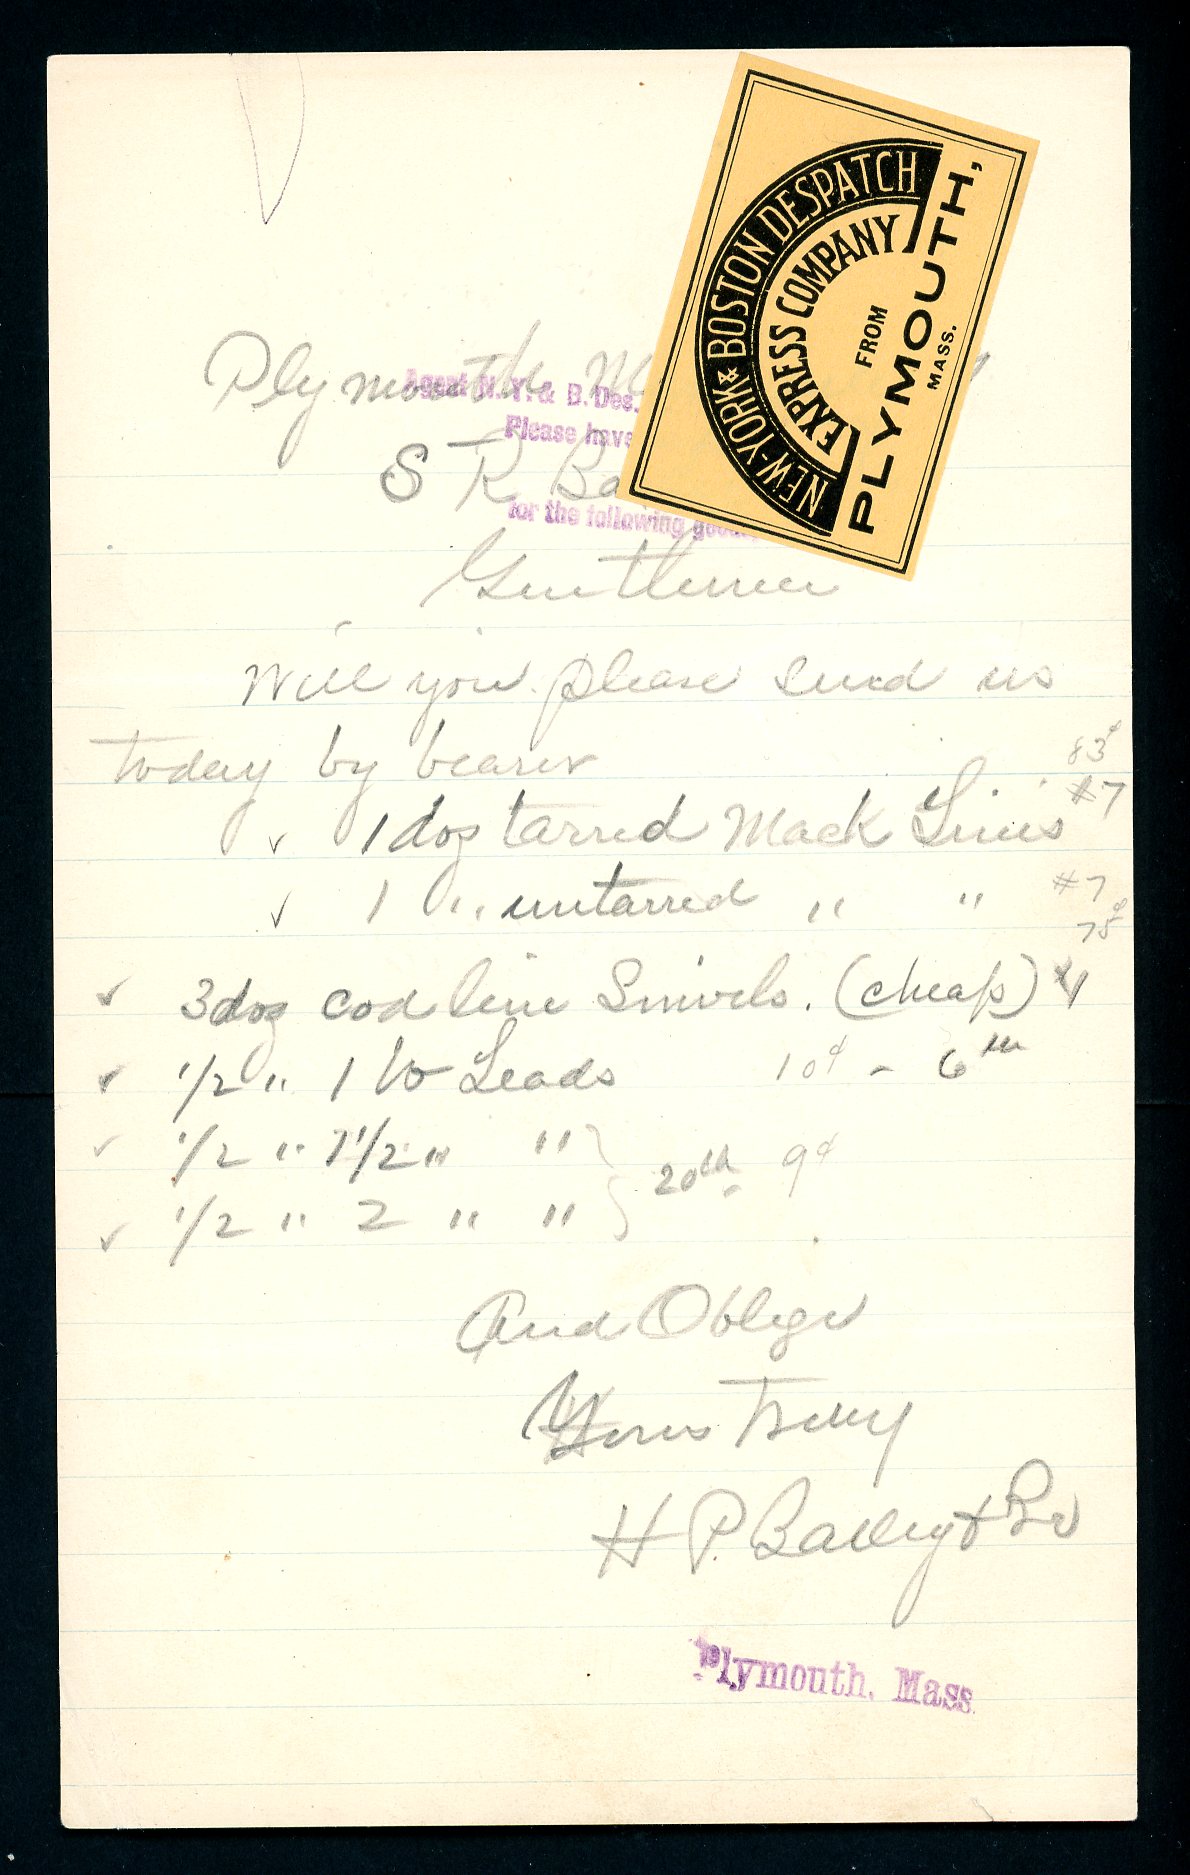 NEW-YORK & BOSTON DESPATCH
EXPRESS COMPANY
FROM
PLYMOUTH,
MASS.
Plymouth M
Agent N. Y. & B. Des.
Please have
S R Ba
for the following goods
Gentlemen
Will you please send us
today by bearer
83¢
✓ 1 doz tarred Mack Lines #7
✓ 1 " untarred " " #7
75¢
✓ 3 doz cod line Swivels. (cheap)
✓ 1/2 " 1 lb Leads 10¢ - 6 lb
✓ 1/2 " 1 1/2 " "
20 lb 9¢
✓ 1/2 " 2 " "
And Oblige
Yours Truly
H P. Bailey & Bro
Plymouth, Mass.